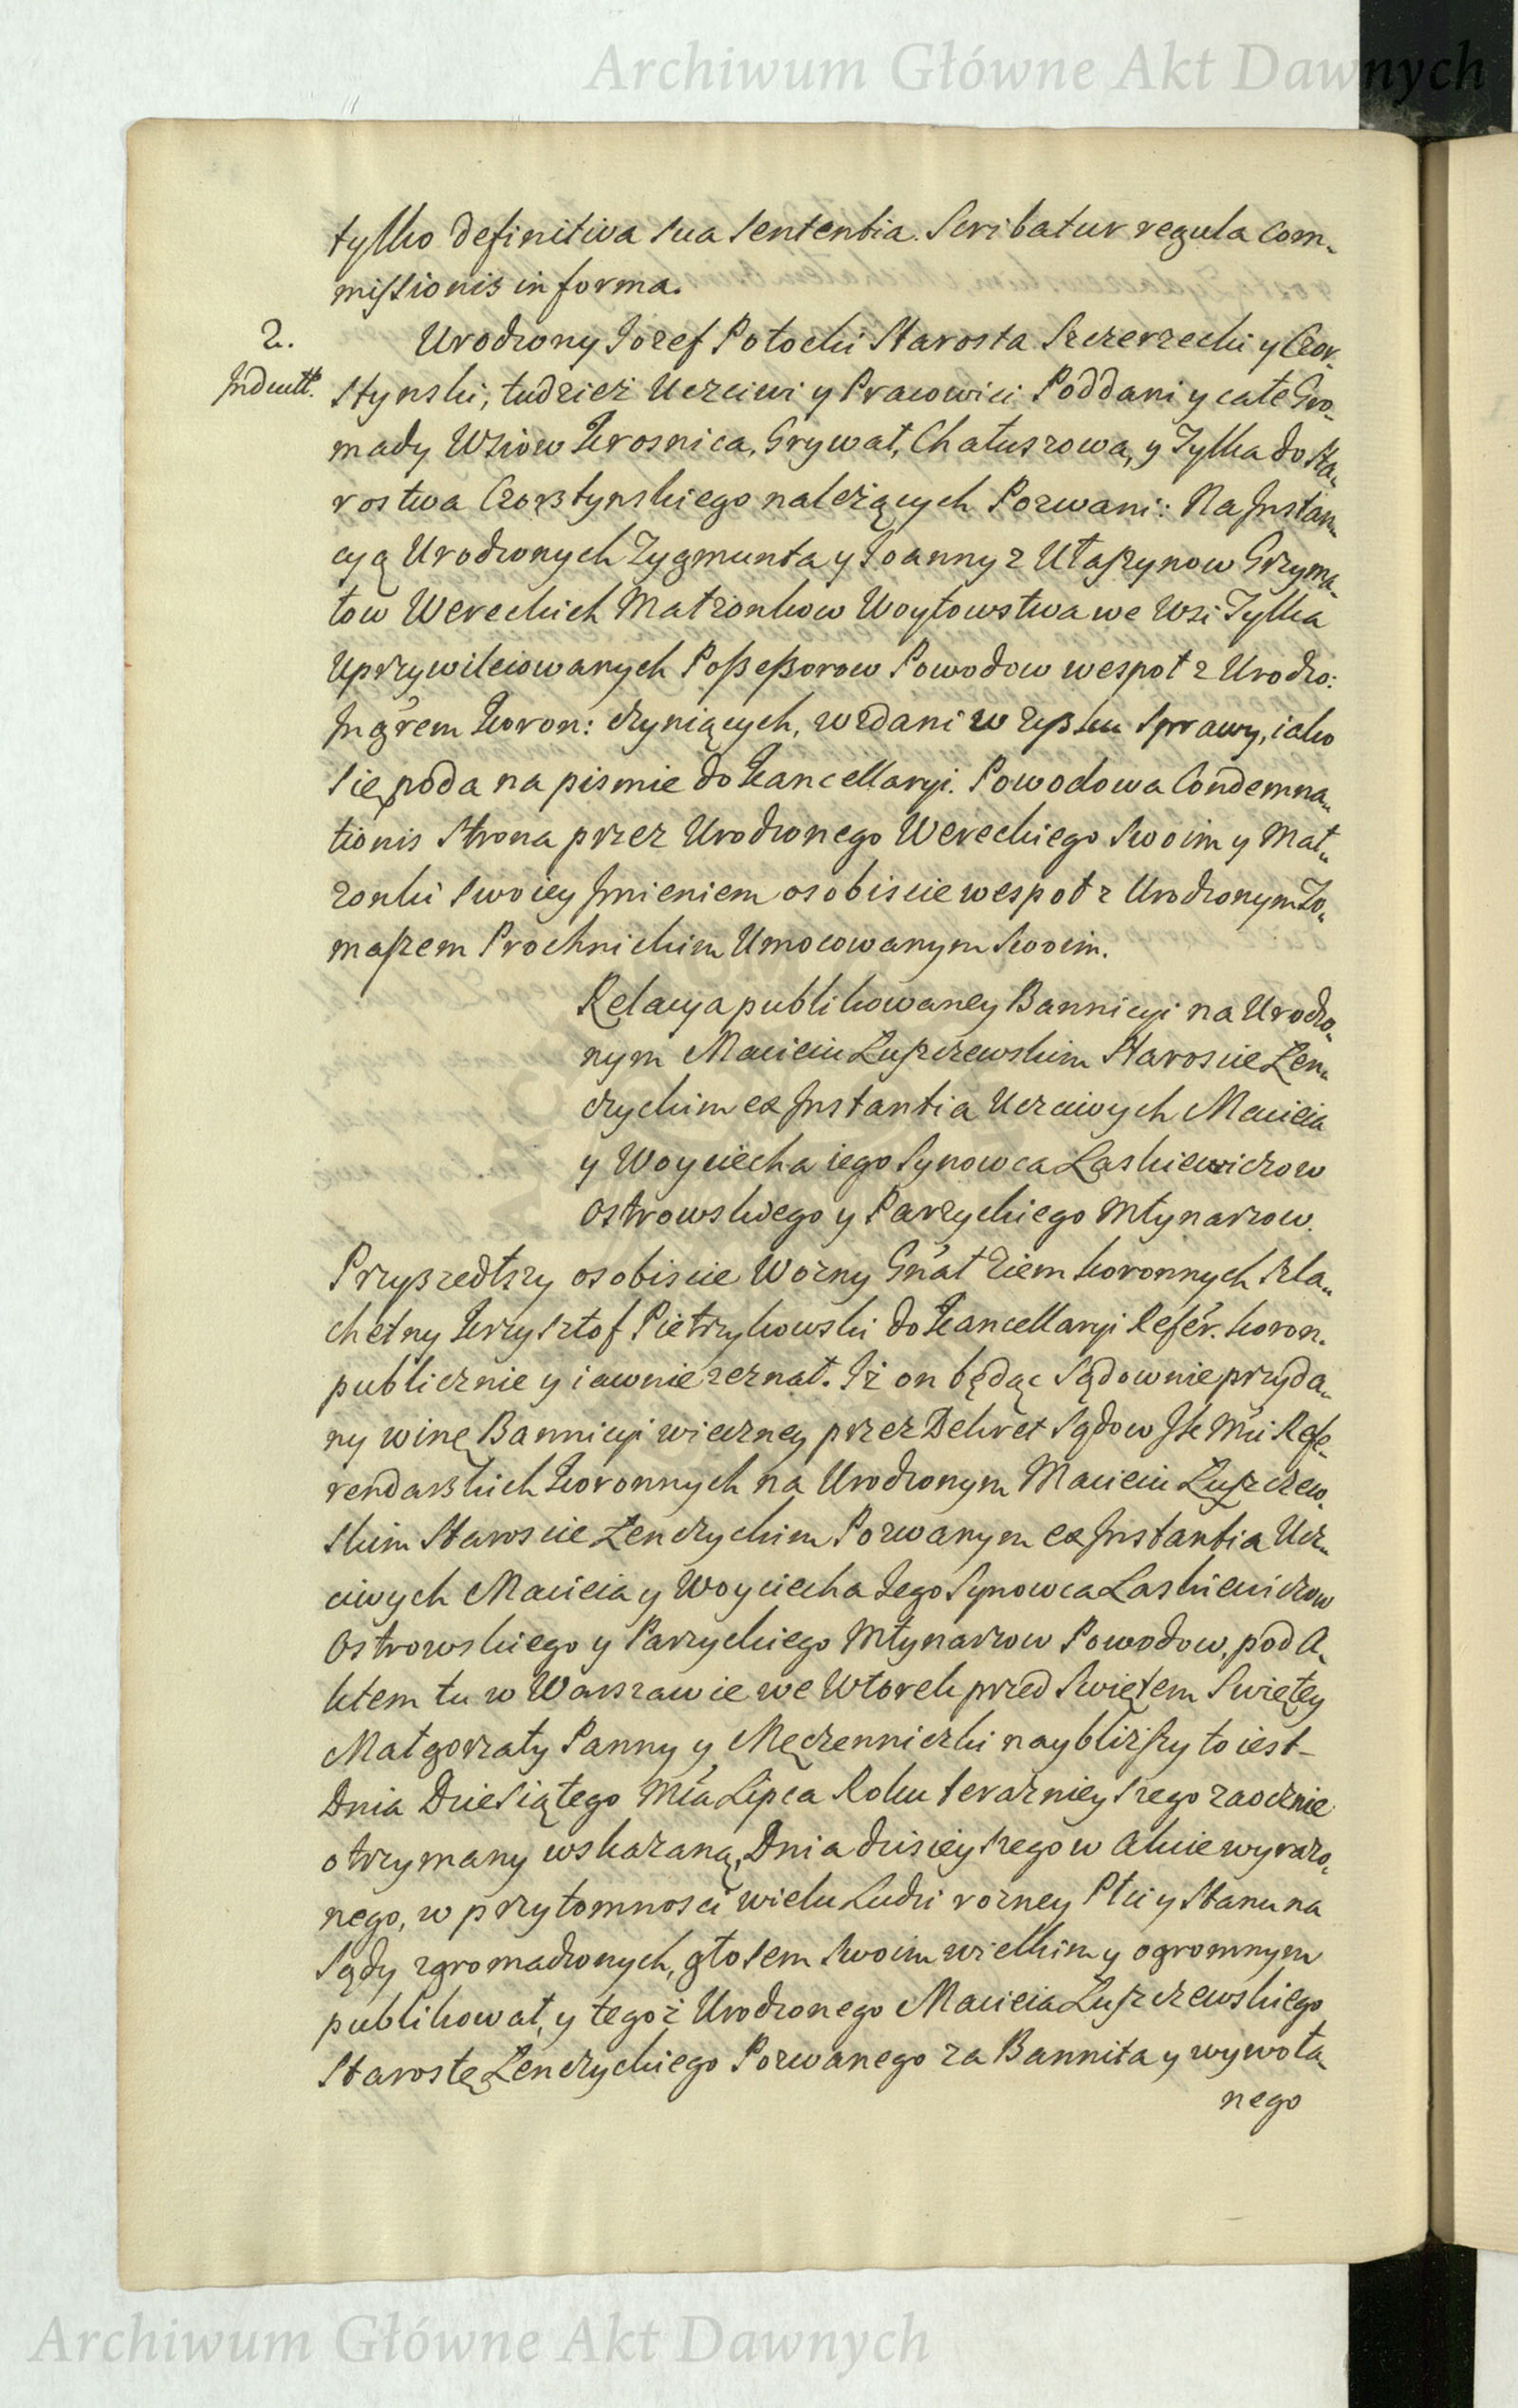 Archiwum Główne Akt Dawnych
tylko definitiva sua sententia. Scribatur regula Com-
missionis in forma.
2.
Urodzony Jozef Potocki Starosta Szczerzecki y Czor-
Indult.
sztynski, tudziesz Uczciwi y Pracowici Poddani y całe Gro-
mady Wsiow Krosnica, Grywałt, Chałuszowa, y Tylka do Sta-
rostwa Czorsztynskiego należących Pozwani: Na Instan-
cyą Urodzonych Zygmunta y Joanny z Ułaszynow Grzyma-
łow Wereckich Małżonkow Woytowstwa we Wsi Tylka
Uprzywileiowanych Possessorow Powodow wespoł z Urodzo:
Ingrem Koron: czyniących, wzdani w zysku Sprawy, iako
się poda na pismie do Kancellaryi. Powodowa Condemna-
tionis Strona przez Urodzonego Wereckiego swoim y Mał-
zonki swoiey Imieniem osobiscie wespoł z Urodzonym To-
maszem Prochnickim Umocowanym swoim.
Relacya publikowaney Bannicyi na Urodzo-
nym Macieiu Łuszczewskim Staroscie Łen-
czyckim ex Instantia Uczciwych Macieia
y Woyciecha iego Synowca Laskiewiczow
Ostrowskiego y Parzyckiego Młynarzow.
Przyszedłszy osobiscie Wozny Gnãł Ziem koronnych Szla-
chetny Krzysztof Pietrzykowski do Kancellaryi Refer. koron.
publicznie y iawnie zeznał. Iż on będąc Sądownie przyda-
ny winę Bannicyi wieczney przez Dekret Sądow Jk Mci Refe-
rendarskich Koronnych na Urodzonym Macieiu Łuszczew-
skim Staroscie Łenczyckim Pozwanym ex Instantia Ucz-
ciwych Macieia y Woyciecha Jego Synowca Laskiewiczow
Ostrowskiego y Parzyckiego Młynarzow Powodow, pod A-
ktem tu w Warszawie we Wtorek przed Swiętem Swiętey
Małgorzaty Panny y Męczenniczki naybliższy to iest
Dnia Dziesiątego Mca Lipca Roku teraznieyszego zaocznie
otrzymany wskazaną, Dnia dzisieyszego w Akcie wyrażo-
nego, w przytomnosci wielu Ludzi rożney Płci y Stanu na
Sądy zgromadzonych, głosem swoim wielkim y ogromnym
publikował, y tegoż Urodzonego Macieia Łuszczewskiego
Starostę Łenczyckiego Pozwanego za Bannita y wywoła-
nego
Archiwum Główne Akt Dawnych